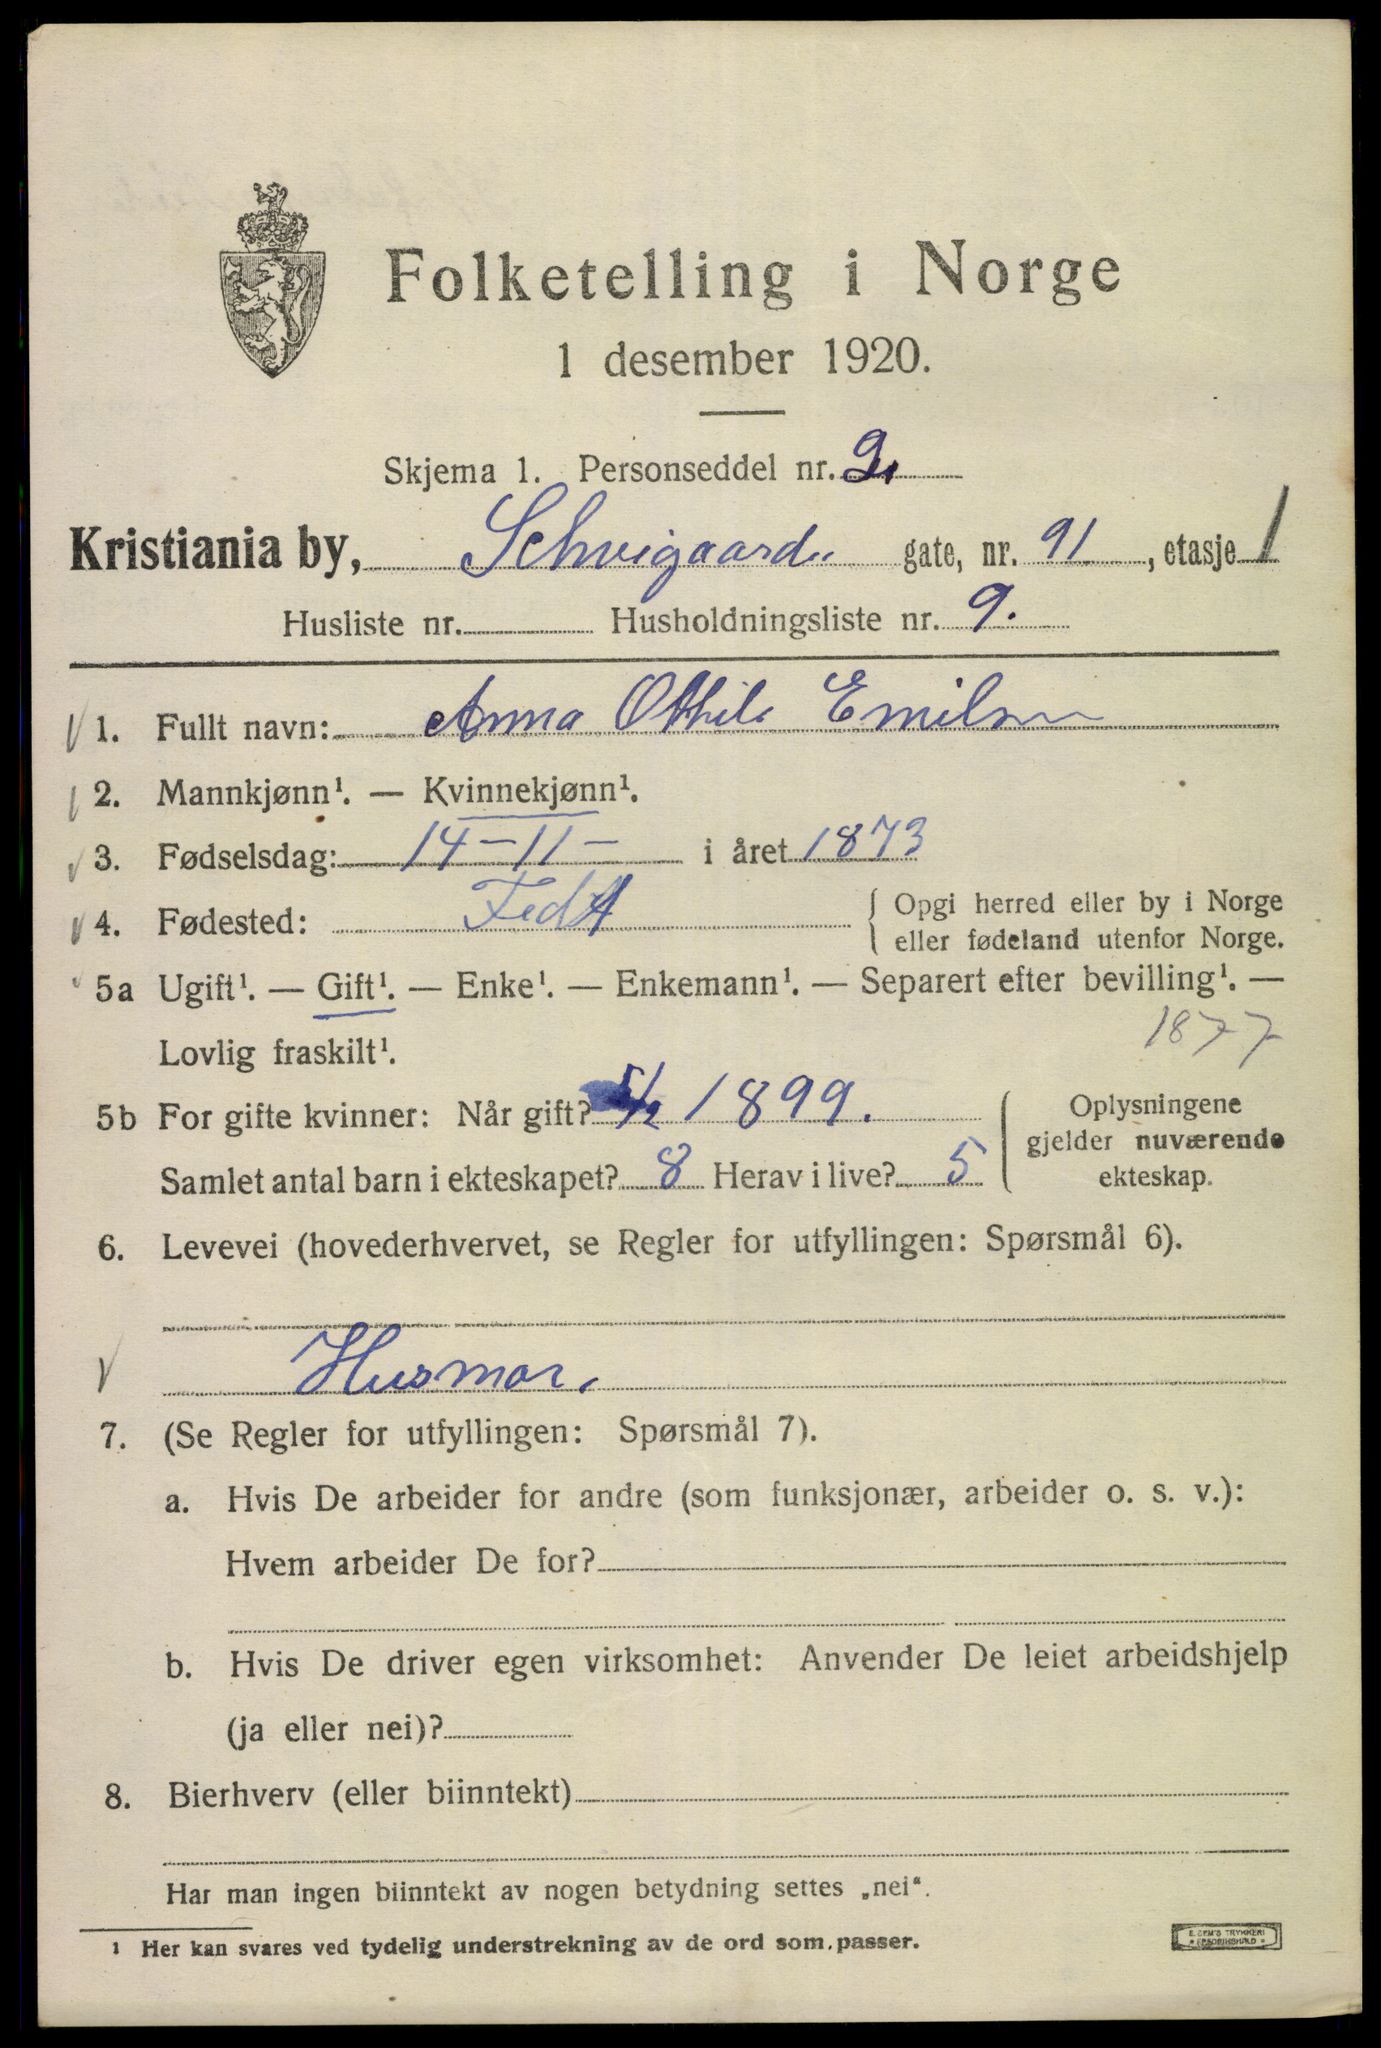 Folketelling i Norge
1 desember 1920.
Skjema 1. Personseddel nr. 2.
Kristiania by, Schweigaards gate, nr. 91, etasje 1
Husliste nr. Husholdningsliste nr. 9.
1. Fullt navn: Anna Othile Emilsen
2. Mannkjønn¹. — Kvinnekjønn¹.
3. Fødselsdag: 14-11- i året 1873
4. Fødested: { Opgi herred eller by i Norge
eller fødeland utenfor Norge.
5a Ugift¹. — Gift¹. — Enke¹. — Enkemann¹. — Separert efter bevilling¹. —
Lovlig fraskilt¹. 1877
5b For gifte kvinner: Når gift? 1899.
Samlet antal barn i ekteskapet? 8 Herav i live? 5
{ Oplysningene
gjelder nuværende
ekteskap.
6. Levevei (hovederhvervet, se Regler for utfyllingen: Spørsmål 6).
Husmor.
7. (Se Regler for utfyllingen: Spørsmål 7).
a. Hvis De arbeider for andre (som funksjonær, arbeider o. s. v.):
Hvem arbeider De for?
b. Hvis De driver egen virksomhet: Anvender De leiet arbeidshjelp
(ja eller nei)?
8. Bierhverv (eller biinntekt)
Har man ingen biinntekt av nogen betydning settes „nei“.
¹ Her kan svares ved tydelig understrekning av de ord som passer.
E. SEM'S TRYKKERI
* FREDRIKSHALD *